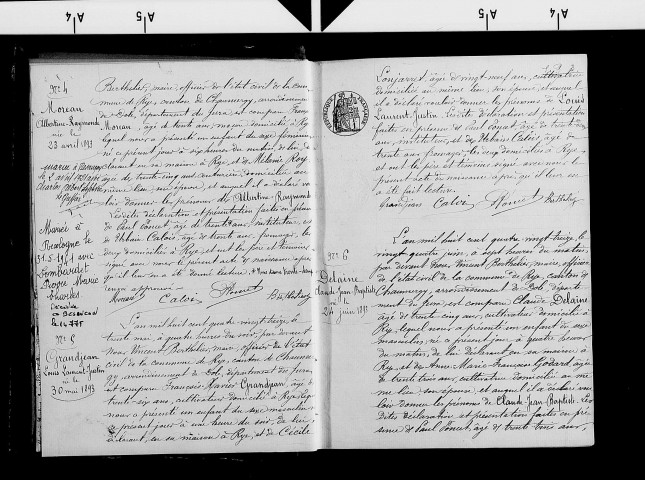 A 4
A 5
A 5
A 4
Nº 4
Moreau
Albertine-Raymonde
née le
23 avril 1893
Mariée à
31-5-1961 avec
Marie
Charles
à BESANCON
Nº 5
Grandjean
Louis Laurent-Justin
né le
30 mai 1893
Berthelier, maire, officier de l'état civil de la com-
mune de Rye, canton de Chaumergy, arrondissement
de Dole, département du Jura est comparu
Moreau, âgé de trente ans, domicilié à Rye
lequel nous a présenté un enfant du sexe féminin,
né ce présent jour à six heures du matin, de lui
déclarant en sa maison à Rye, et de Mélanie Roy,
âgée de trente cinq ans domiciliée au
même lieu, son épouse, et auquel il a déclaré vou-
loir donner les prénoms de Albertine-Raymonde
Lesdites déclaration et présentation faites en présence
de Paul Poncet, âgé de trente ans, instituteur, et
de Calois, âgé de trente ans, fromager, les
deux domiciliés à Rye, et ont les père et témoins
signé avec nous le présent acte de naissance après
qu'il leur en a été donné lecture.
approuvé
Moreau Calois Poncet Berthelier
L'an mil huit cent quatre vingt treize le
trente mai, à quatre heures du soir, par devant
Nous Vincent Berthelier, maire, officier de l'état
civil de la commune de Rye, canton de Chaumer-
gy, arrondissement de Dole, département du Jura,
est comparu François Xavier Grandjean, âgé de
trente-six ans, cultivateur, domicilié à Rye, lequel
nous a présenté un enfant du sexe masculin né
ce présent jour à une heure du soir, de lui
déclarant, en sa maison à Rye, et de Cécile
Nº 6
Delaine
Claude Jean-Baptiste
né le
24 juin 1893
âgée de vingt neuf ans, cultivatrice
domiciliée au même lieu, son épouse, et auquel
il a déclaré vouloir donner les prénoms de Louis
Laurent-Justin. Lesdites déclaration et présentation
faites en présence de Paul Poncet, âgé de trente
ans, instituteur, et de Calois, âgé de
trente ans, fromager, les deux domiciliés à Rye
et ont les père et témoins signé avec nous le
présent acte de naissance après qu'il leur en
a été fait lecture.
Grandjean Calois Poncet Berthelier
L'an mil huit cent quatre vingt treize le
vingt quatre juin, à sept heures du matin,
par devant Nous Vincent Berthelier, maire, officier
de l'état civil de la commune de Rye, canton de
Chaumergy, arrondissement de Dole, départe-
ment du Jura, est comparu Claude Delaine
âgé de trente cinq ans, cultivateur, domicilié à
Rye, lequel nous a présenté un enfant du sexe
masculin, né ce présent jour à quatre heures
du matin, de lui déclarant en sa maison à
Rye, et de Anne Marie Françoise Gobard, âgée
de trente trois ans, cultivatrice, domiciliée au mê-
me lieu, son épouse, et auquel il a déclaré vou-
loir donner les prénoms de Claude Jean-Baptiste. Les-
dites déclaration et présentation faites en pré-
sence de Paul Poncet, âgé de trente trois ans,